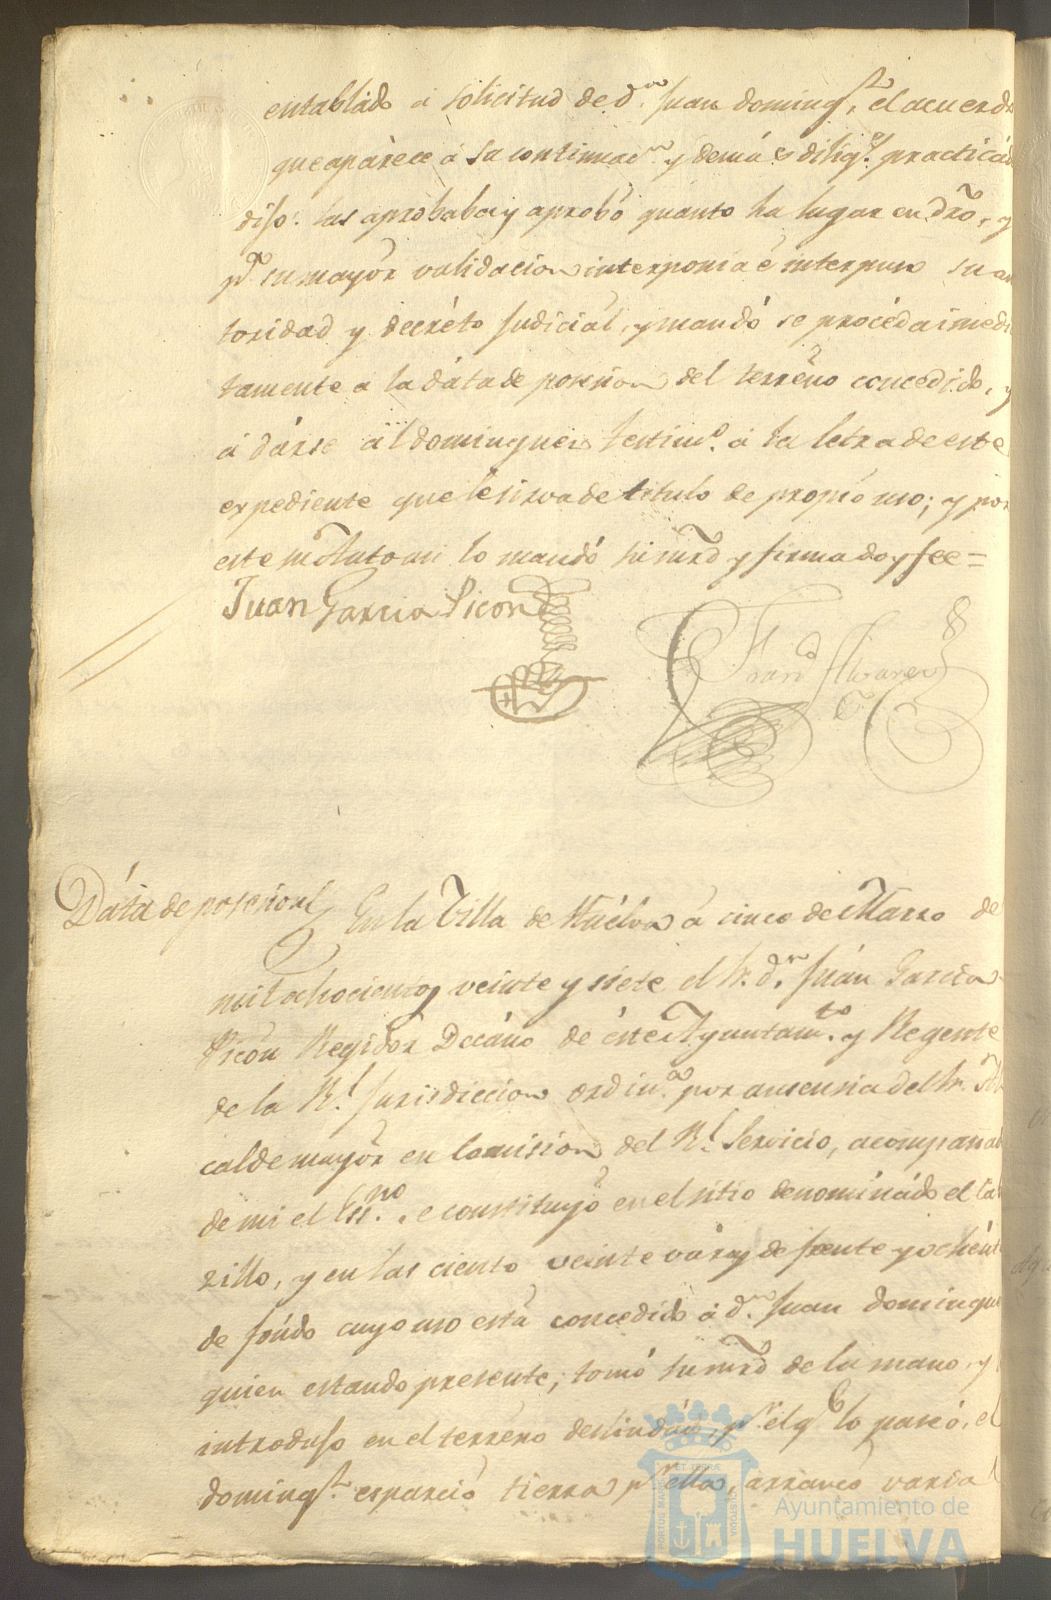 entablado á solicitud de d.n Juan Doming.z el acuerdo
que aparece á su continuac.n y demás dilig.s practicad
dijo: las aprobaba y aprobó quanto ha lugar en dro, y
p.a su mayor validacion interponia é interpuso su au
toridad y decréto judicial, y mandó se procéda inmedi
tamente a la dáta de posesion del terreno concedido, y
á dárse al Dominguez testim.o á la letra de este
expediente que le sirva de titulo de propio uso; y por
este su Auto asi lo mandó su mrd y firma doy fee =
Juan Garcia Picon
Fran.co Alvarez
Dáta de posesion
En la Villa de Huelva á cinco de Marzo de
mil ochocientos veinte y siete el Sr. d.n Juan Garcia
Picon Regidor Decáno de éste Ayuntam.to y Regente
de la R.l Jurisdiccion ordin.a por ausencia del Sr. Al
calde mayor en comision del R.l Servicio, acompañad
de mi el Ess.no se constituyó en el sitio denominado el Ca
zillo, y en las ciento veinte varas de frente y ochent
de fondo cuyo uso está concedido á d.n Juan Domingue
quien estando presente, tomó su mrd de la mano, y
introdujo en el terreno deslindado, p.r el q.e lo paseó, el
Doming.z esparció tierra p.r ella, arrancó varia
PORTUS MARIS ET TERRÆ CUSTODIA
Ayuntamiento de
HUELVA